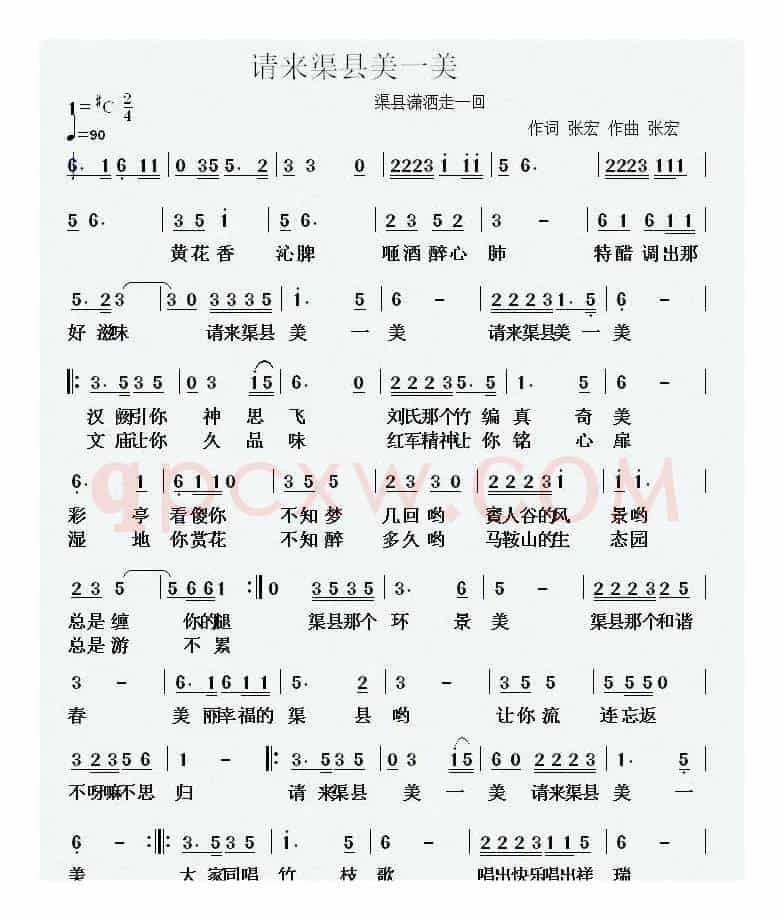 请来渠县美一美
1=#C 2/4
渠县潇洒走一回
♩=90
作词 张宏 作曲 张宏
6. 1 6 1 1 | 0 3 5 5. 2 | 3 3 0 | 2 2 2 3 1 1 1 | 5 6. | 2 2 2 3 1 1 1 |
5 6. | 3 5 1 | 5 6. | 2 3 5 2 | 3 - | 6 1 6 1 1 |
黄花香 沁脾 咂酒醉心 肺 特醋调出那
5. 2 3 | 3 0 3 3 3 5 | 1. 5 | 6 - | 2 2 2 3 1. 5 | 6 - |
好滋味 请来渠县 美 一 美 请来渠县美一美
‖: 3. 5 3 5 | 0 3 1 5 | 6. 0 | 2 2 2 3 5. 5 | 1. 5 | 6 - |
汉阙引你 神思飞 刘氏那个竹编真 奇 美
文庙让你 久品味 红军精神让你铭 心 扉
6. 1 | 6 1 1 0 | 3 5 5 | 2 3 3 0 | 2 2 2 3 1 | 1 1. |
qpcxw.com
彩 亭 看傻你 不知梦 几回哟 賨人谷的风 景哟
湿 地 你赏花 不知醉 多久哟 马鞍山的生 态园
2 3 5 | 5 6 6 1 :‖ 0 3 5 3 5 | 3. 6 | 5 - | 2 2 2 3 2 5 |
总是缠 你的腿 渠县那个 环 景 美 渠县那个和谐
总是游 不累
3 - | 6. 1 6 1 1 | 5. 2 | 3 - | 3 5 5 | 5 5 5 0 |
春 美丽幸福的 渠 县 哟 让你流 连忘返
3 2 3 5 6 | 1 - ‖: 3. 5 3 5 | 0 3 1 5 | 6 0 2 2 2 3 | 1. 5 |
不呀嘛不思 归 请来渠县 美一 美 请来渠县 美 一
6 - :‖: 3. 5 3 5 | 1. 5 | 6 - | 2 2 2 3 1 1 5 | 6 - |
美 大家同唱 竹 枝 歌 唱出快乐唱出祥 瑞